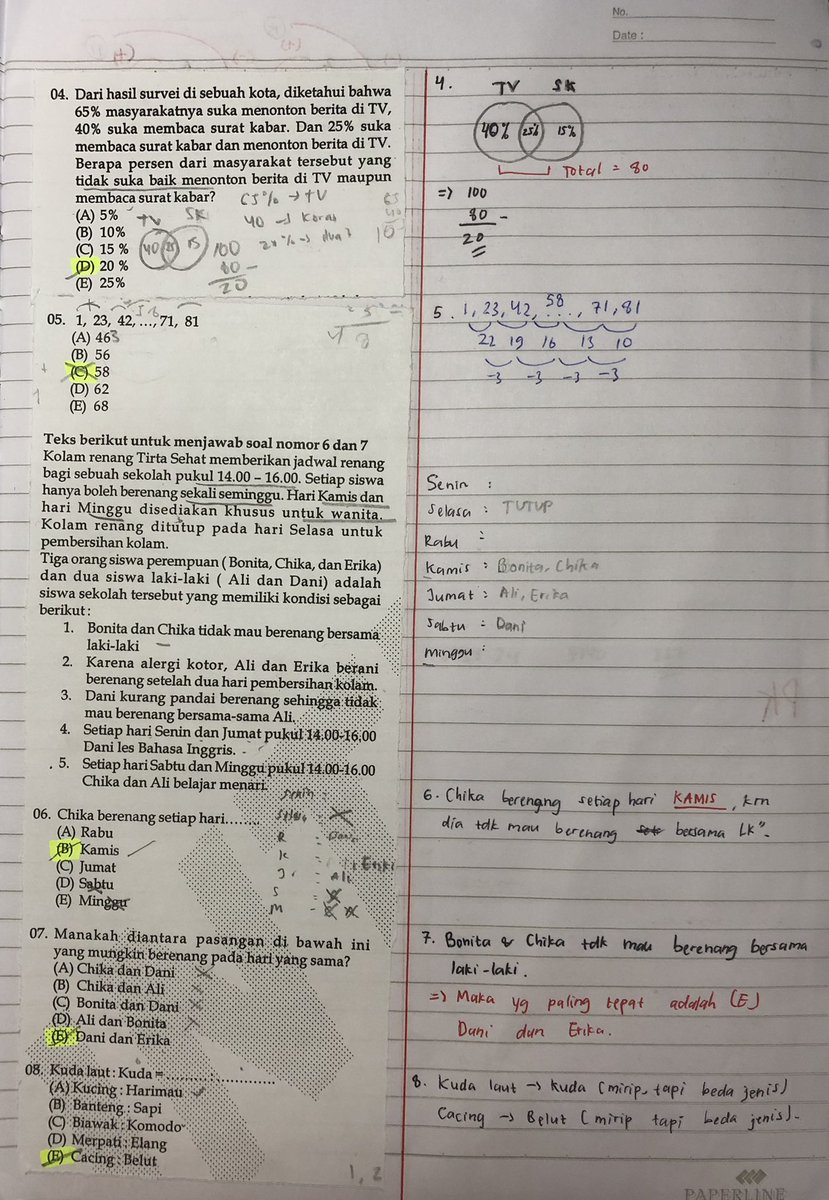 No.
Date :
04. Dari hasil survei di sebuah kota, diketahui bahwa
65% masyarakatnya suka menonton berita di TV,
40% suka membaca surat kabar. Dan 25% suka
membaca surat kabar dan menonton berita di TV.
Berapa persen dari masyarakat tersebut yang
tidak suka baik menonton berita di TV maupun
membaca surat kabar?
65% → TV
40 → Koran
(A) 5%
(B) 10%
(C) 15 %
(D) 20 %
(E) 25%
TV SK
40 25 15
100
80 –
20
05. 1, 23, 42, ..., 71, 81
58
(A) 463
(B) 56
(C) 58
(D) 62
(E) 68
Teks berikut untuk menjawab soal nomor 6 dan 7
Kolam renang Tirta Sehat memberikan jadwal renang
bagi sebuah sekolah pukul 14.00 – 16.00. Setiap siswa
hanya boleh berenang sekali seminggu. Hari Kamis dan
hari Minggu disediakan khusus untuk wanita.
Kolam renang ditutup pada hari Selasa untuk
pembersihan kolam.
Tiga orang siswa perempuan ( Bonita, Chika, dan Erika)
dan dua siswa laki-laki ( Ali dan Dani) adalah
siswa sekolah tersebut yang memiliki kondisi sebagai
berikut :
1. Bonita dan Chika tidak mau berenang bersama
laki-laki
2. Karena alergi kotor, Ali dan Erika berani
berenang setelah dua hari pembersihan kolam.
3. Dani kurang pandai berenang sehingga tidak
mau berenang bersama-sama Ali.
4. Setiap hari Senin dan Jumat pukul 14.00-16.00
Dani les Bahasa Inggris.
5. Setiap hari Sabtu dan Minggu pukul 14.00-16.00
Chika dan Ali belajar menari.
06. Chika berenang setiap hari........
(A) Rabu
(B) Kamis
(C) Jumat
(D) Sabtu
(E) Minggu
Senin :
R : Dani
K :
J : Ali
S
M
07. Manakah diantara pasangan di bawah ini
yang mungkin berenang pada hari yang sama?
(A) Chika dan Dani
(B) Chika dan Ali
(C) Bonita dan Dani
(D) Ali dan Bonita
(E) Dani dan Erika
08. Kuda laut : Kuda = ........................
(A) Kucing : Harimau
(B) Banteng : Sapi
(C) Biawak : Komodo
(D) Merpati : Elang
(E) Cacing : Belut
1, 2
4. TV SK
40% 25% 15%
Total = 80
=> 100
80 –
20
5. 1, 23, 42, ..., 71, 81
58
22 19 16 13 10
-3 -3 -3 -3
Senin :
Selasa : TUTUP
Rabu :
Kamis : Bonita, Chika
Jumat : Ali, Erika
Sabtu : Dani
Minggu :
6. Chika berenang setiap hari KAMIS, krn
dia tdk mau berenang bersama LK".
7. Bonita & Chika tdk mau berenang bersama
laki-laki.
=> Maka yg paling tepat adalah (E)
Dani dan Erika.
8. Kuda laut → kuda (mirip, tapi beda jenis)
Cacing → Belut (mirip tapi beda jenis).
PAPERLINE